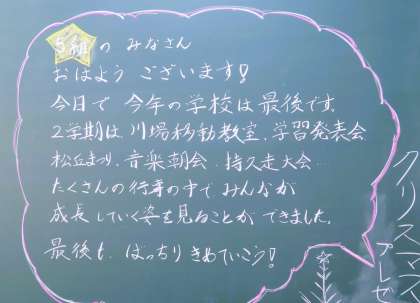 5組の みなさん
おはよう ございます!
今日で 今年の学校は最後です。
2学期は、川場移動教室、学習発表会
松丘まつり、音楽朝会、持久走大会…
たくさんの行事の中で みんなが
成長していく姿を見ることが できました。
最後も、ばっちり きめていこう!
クリスマス
プレゼ